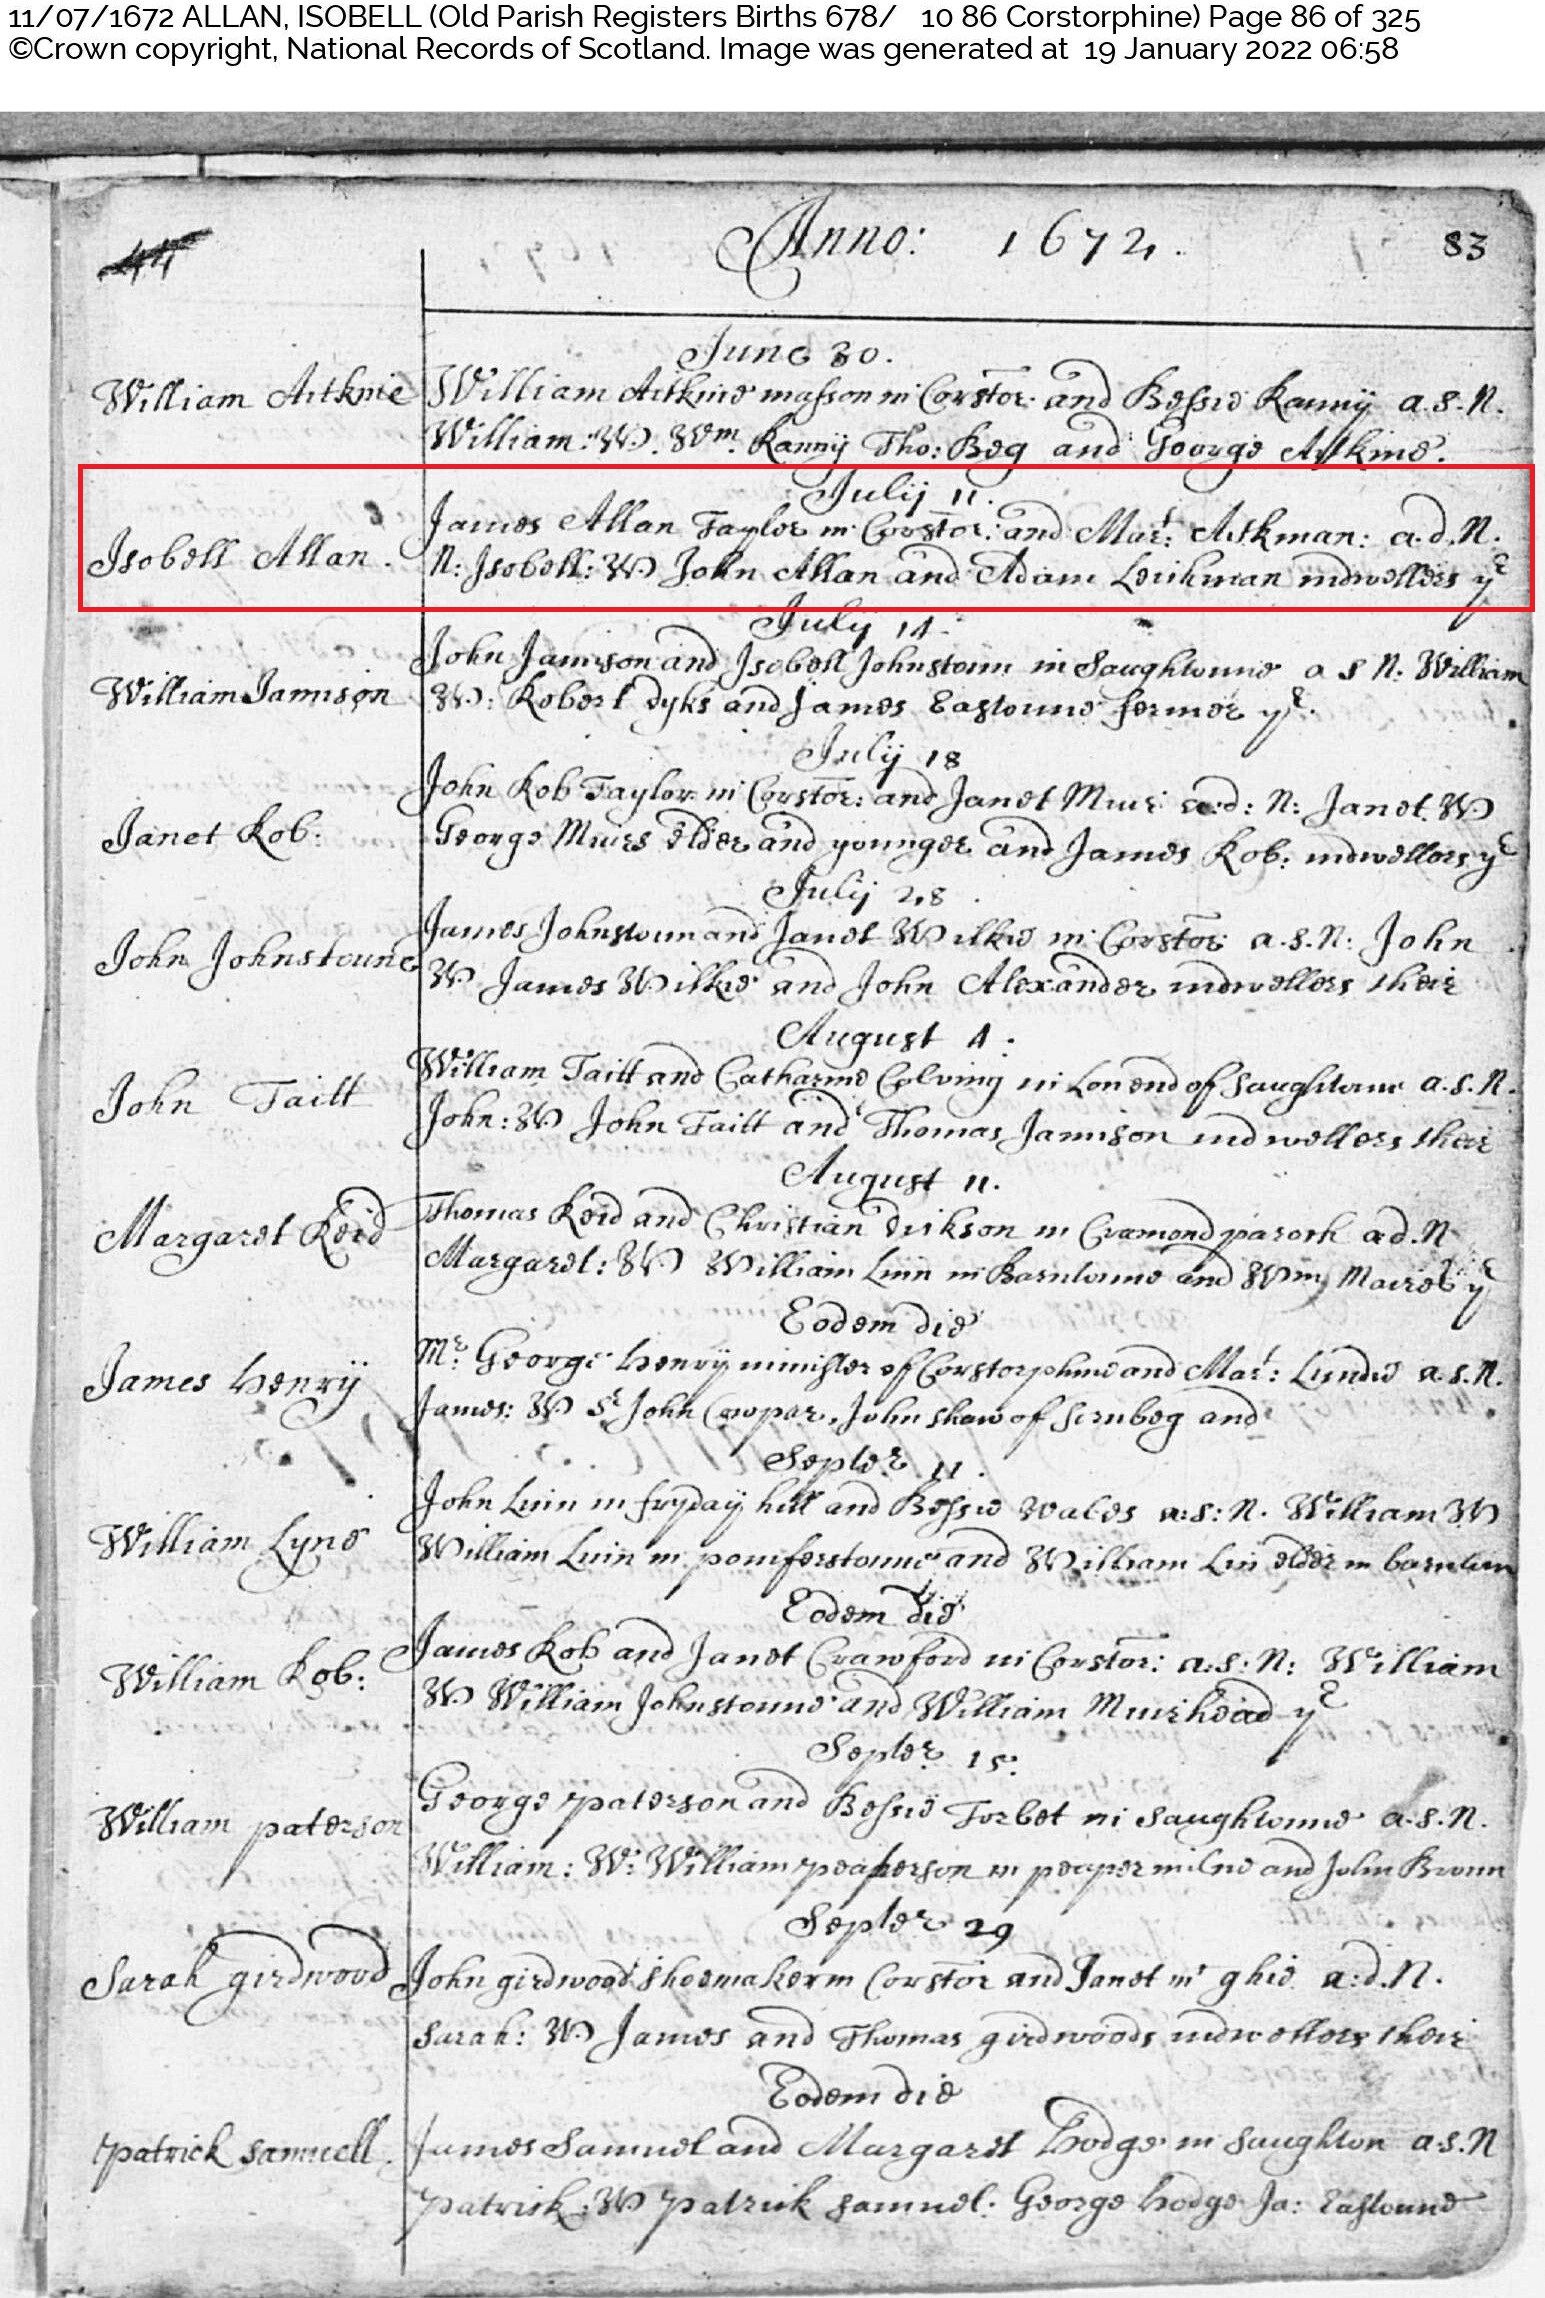 11/07/1672 ALLAN, ISOBELL (Old Parish Registers Births 678/ 10 86 Corstorphine) Page 86 of 325
©Crown copyright, National Records of Scotland. Image was generated at 19 January 2022 06:58
Anno: 1672. 83
June 30.
William Aitkine William Aitkine masson in Corstor: and Bessie Kanny a.s.N.
William: W. Wm. Kanny Tho: Beg and George Aitkine.
July 11.
James Allan Taylor in Corstor: and Mart: Aikman: a.d.N.
Isobell Allan. N: Isobell: W John Allan and Adam Leishman indwellers yr
July 14.
John Jamison and Isobell Johnstoun in Saughtoune a s N: William
William Jamison W: Robert dyks and James Eastoune fermer yr.
July 18
John Rob Taylor in Corstor: and Janet Muir a:d: N: Janet W
Janet Rob: George Muirs elder and younger and James Rob: indwellers yr
July 28.
James Johnstoun and Janet Wilkie in Corstor a.s.N: John
John Johnstoune W James Wilkie and John Alexander indwellers their
August 4:
William Tailt and Catharine Colving in Lonend of Saughtoune a.s.N.
John Tailt John: W John Tailt and Thomas Jamison indwellers their
August 11.
Margaret Reid Thomas Reid and Christian dickson in Cramond paroch a d.N
Margaret: W William Linn in Barntoune and Wm yr
Eodem die
Mr. George Henry minister of Corstorphine and Mart: Lundie a.s.N.
James Henry James: W Sr John Cowpar, John shaw of and
Septer. 11.
John Luin in fryday hill and Bessie wales a:s:N. William W
William Lyne William Luin in and William Lin elder in barntun
Eodem die
James Rob and Janet Crawford in Corstor: a:s:N: William
William Rob: W William Johnstoune and William Muirhead yr
Septer. 15:
George paterson and Bessie Torbet in Saughtoune a.s.N.
William paterson William: W: William in and John Broun
Septer 29
Sarah girdwood John girdwood shoemaker in Corstor and Janet mc ghie a:d.N.
Sarah: W James and Thomas girdwoods indwellers their
Eodem die
patrick samuell James Samuel and Margaret Hodge in Saughton a.s.N
patrick: W patrick samuel: George Hodge Ja: Eastoune